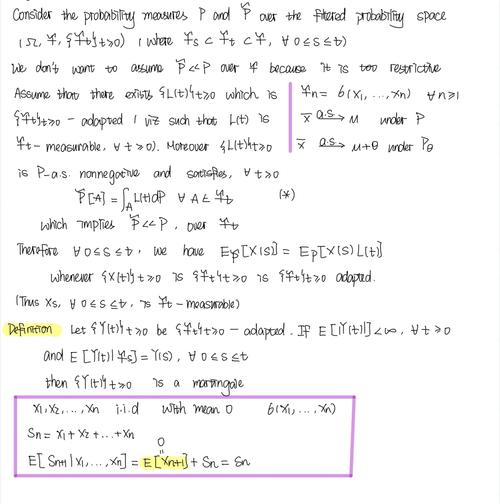 Consider the probability measures P and P̃ over the filtered probability space
(Ω, 𝓕, {𝓕t}t≥0) (where 𝓕s ⊂ 𝓕t ⊂ 𝓕, ∀ 0≤s≤t)
We don't want to assume P̃<<P over 𝓕 because it is too restrictive
Assume that there exists {L(t)}t≥0 which is
{𝓕t}t≥0 - adapted (viz such that L(t) is
𝓕t - measurable, ∀ t≥0). Moreover {L(t)}t≥0
𝓕n = σ(X1, ..., Xn) ∀n≥1
x̄ a.s.→ μ under P
x̄ a.s.→ μ+θ under Pθ
is P-a.s. nonnegative and satisfies, ∀ t≥0
P̃[A] = ∫A L(t)dP ∀ A∈ 𝓕t (*)
which implies P̃<<P, over 𝓕t
Therefore ∀ 0≤s≤t, we have EP̃[X(s)] = EP[X(s)L(t)]
whenever {X(t)}t≥0 is {𝓕t}t≥0 is {𝓕t}t≥0 adapted.
(Thus Xs, ∀ 0≤s≤t, is 𝓕t-measurable)
Definition Let {Y(t)}t≥0 be {𝓕t}t≥0 - adapted. If E[|Y(t)|]<∞, ∀ t≥0
and E[Y(t)|𝓕s] = Y(s), ∀ 0≤s≤t
then {Y(t)}t≥0 is a martingale
X1, X2, ..., Xn i.i.d with mean 0 σ(X1, ..., Xn)
Sn = X1 + X2 + ... + Xn
0
E[Sn+1 | X1, ..., Xn] = E[Xn+1] + Sn = Sn